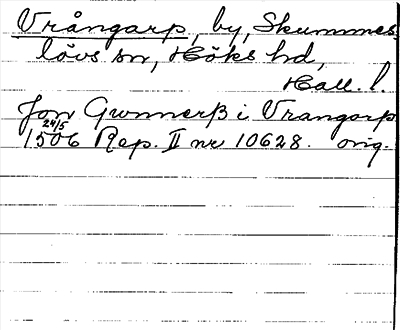 Vrångarp, by, Skummes-
lövs sn, Höks hd,
Hall. l.
Jon Gwnnerß i Vrangarp
24/5
1506 Rep. II nr 10628. orig.